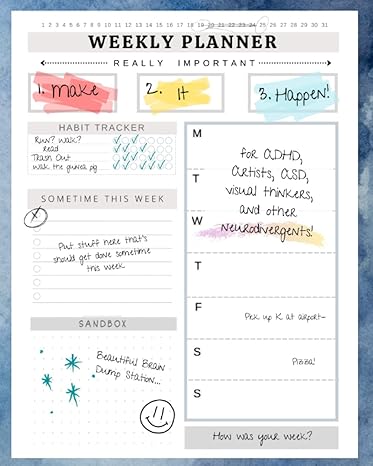 1 2 3 4 5 6 7 8 9 10 11 12 13 14 15 16 17 18 19 20 21 22 23 24 25 26 27 28 29 30 31
WEEKLY PLANNER
REALLY IMPORTANT
1. Make
2. It
3. Happen!
HABIT TRACKER
Run? Walk?
Read
Trash Out
Walk the guinea pig
SOMETIME THIS WEEK
X
Put stuff here that's
should get done sometime
this week
SANDBOX
Beautiful Brain
Dump Station...
M
T
W
T
F
S
S
for ADHD,
Artists, ASD,
visual thinkers,
and other
Neurodivergents!
Pick up K at airport-
Pizza!
How was your week?